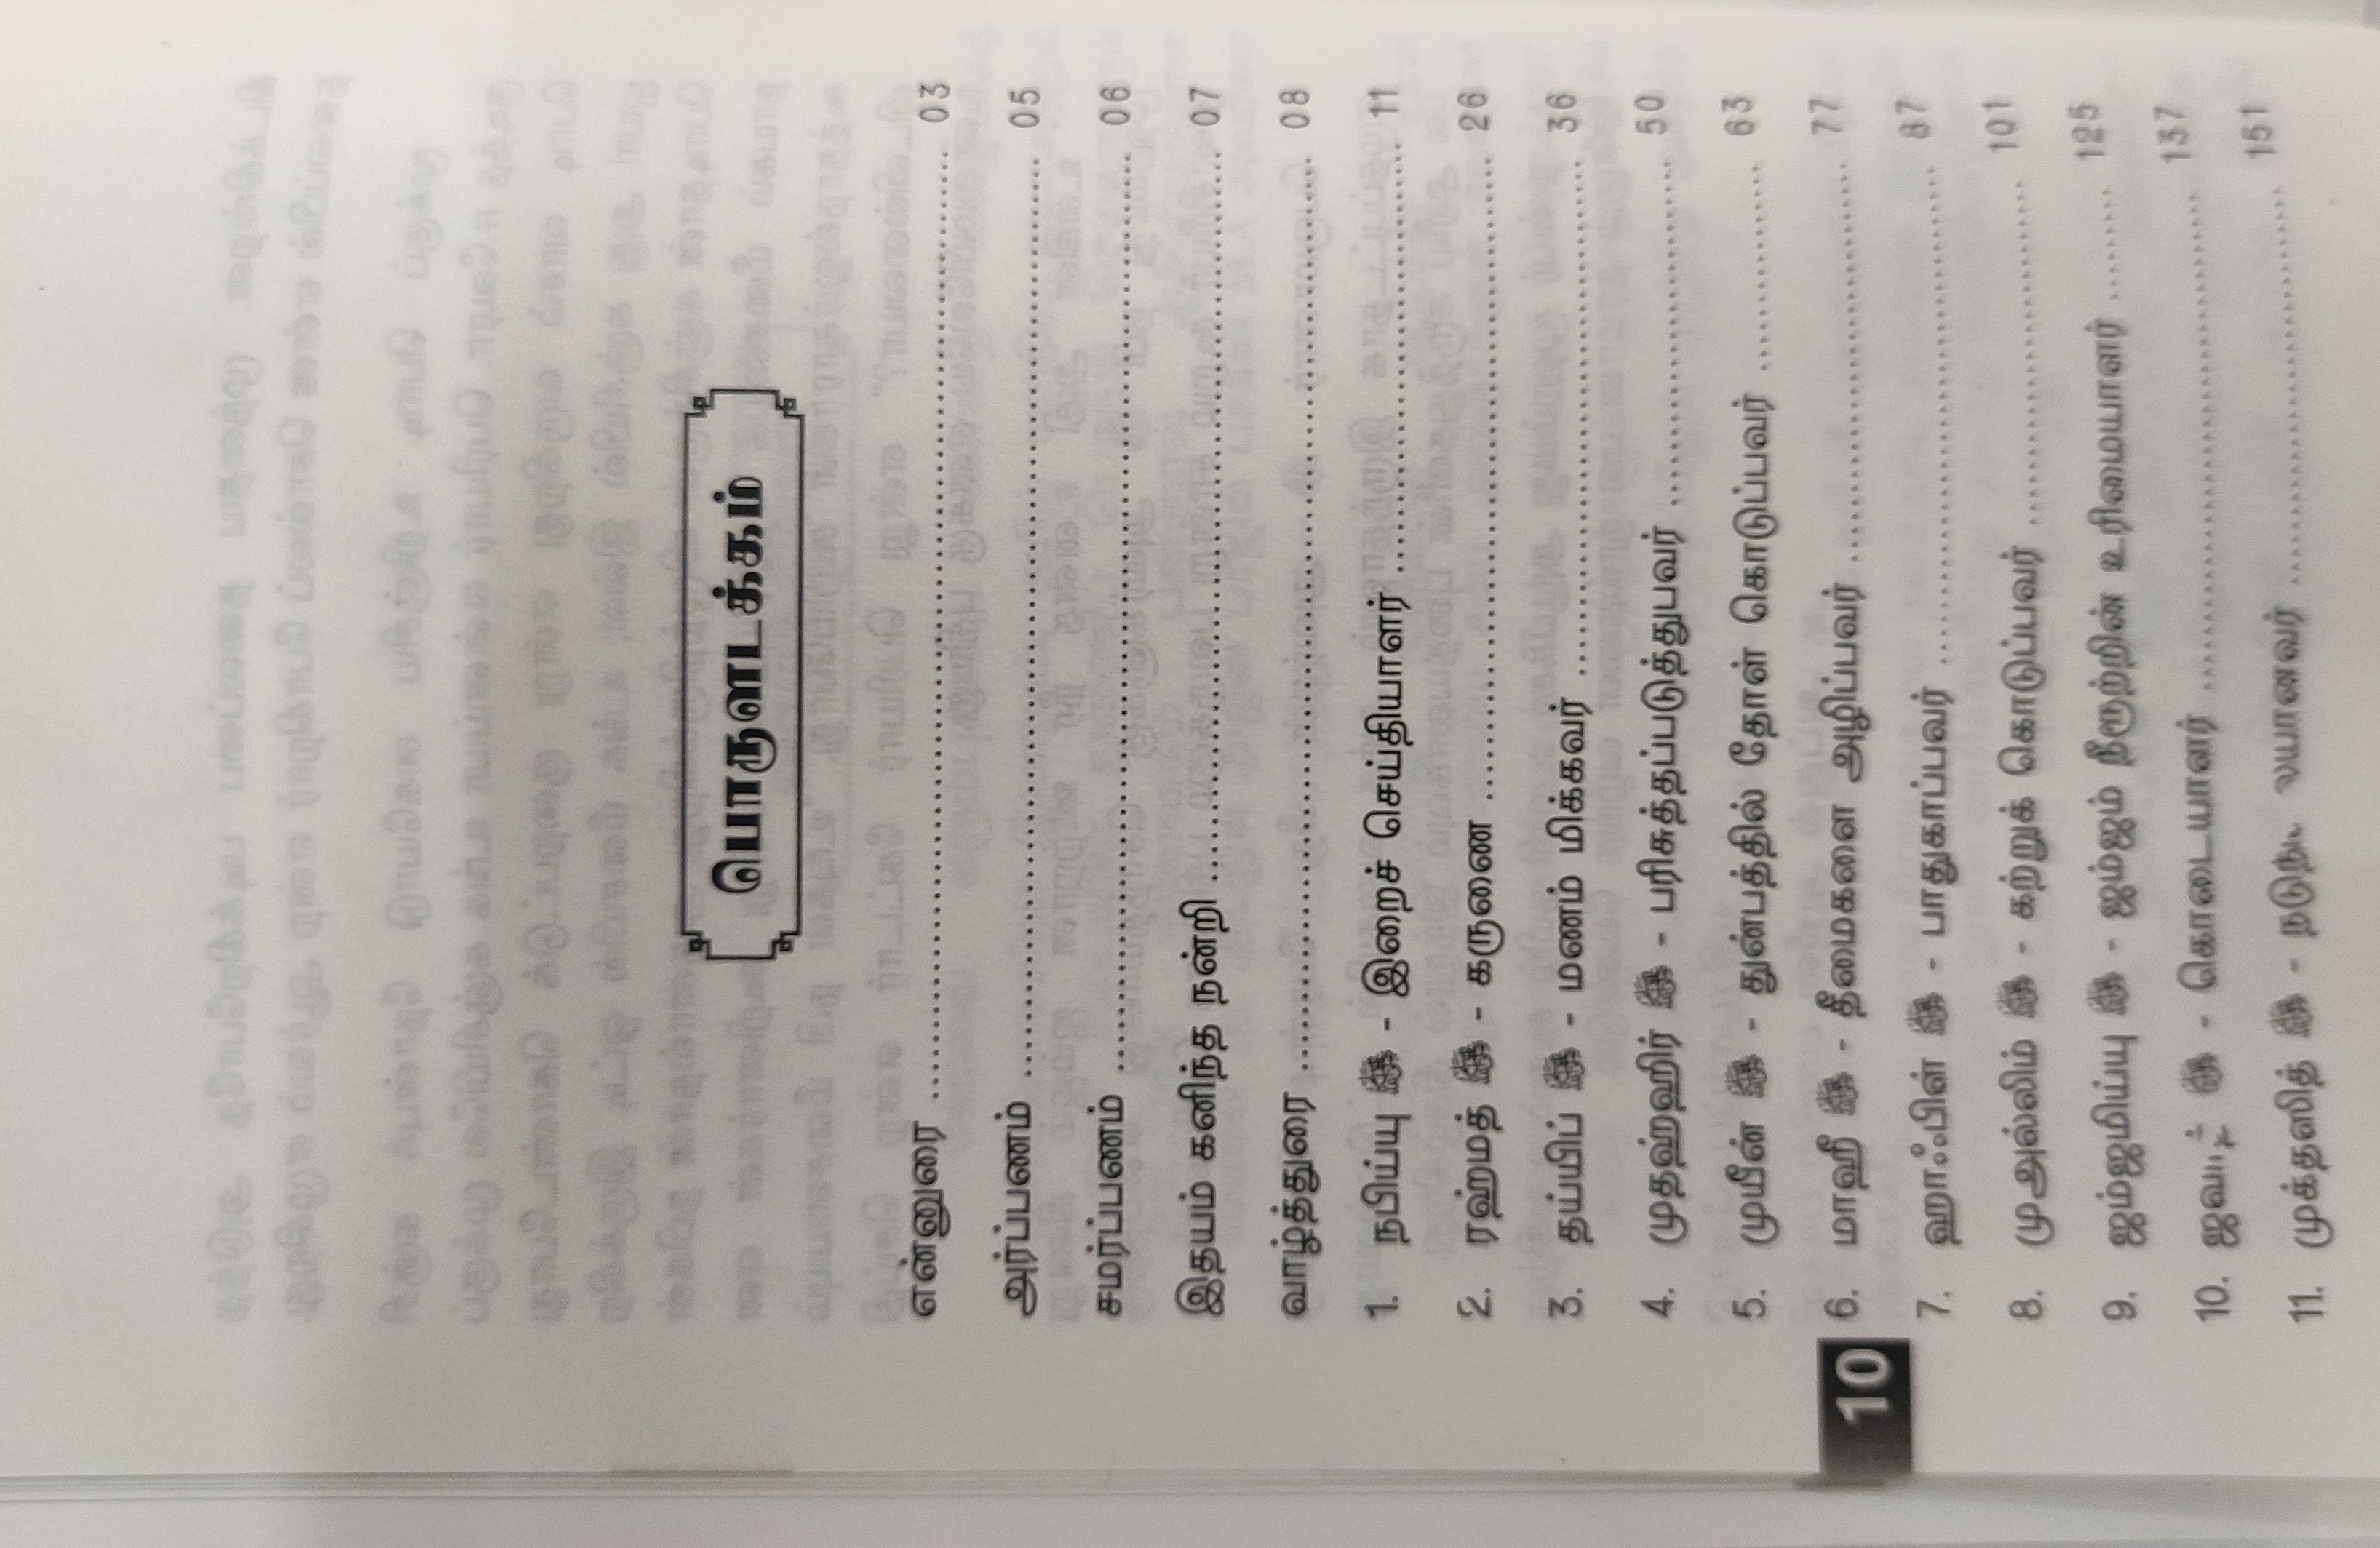 பொருளடக்கம்
என்னுரை ........ 03
அர்ப்பணம் ........ 05
சமர்ப்பணம் ........ 06
இதயம் கனிந்த நன்றி ........ 07
வாழ்த்துரை ........ 08
1. நபிய்யு ﷺ - இறைச் செய்தியாளர் ........ 11
2. ரஹ்மத் ﷺ - கருணை ........ 26
3. தய்யிப் ﷺ - மணம் மிக்கவர் ........ 36
4. முதஹ்ஹிர் ﷺ - பரிசுத்தப்படுத்துபவர் ........ 50
5. முயீன் ﷺ - துன்பத்தில் தோள் கொடுப்பவர் ........ 63
6. மாஹீ ﷺ - தீமைகளை அழிப்பவர் ........ 77
7. ஹாஃபின் ﷺ - பாதுகாப்பவர் ........ 87
8. முஅல்லிம் ﷺ - கற்றுக் கொடுப்பவர் ........ 101
9. ஜம்ஜமிய்யு ﷺ - ஜம்ஜம் நீரூற்றின் உரிமையாளர் ........ 125
10. ﷺ - கொடையாளர் ........ 137
11. முக்தஸித் ﷺ - ........ 151
10